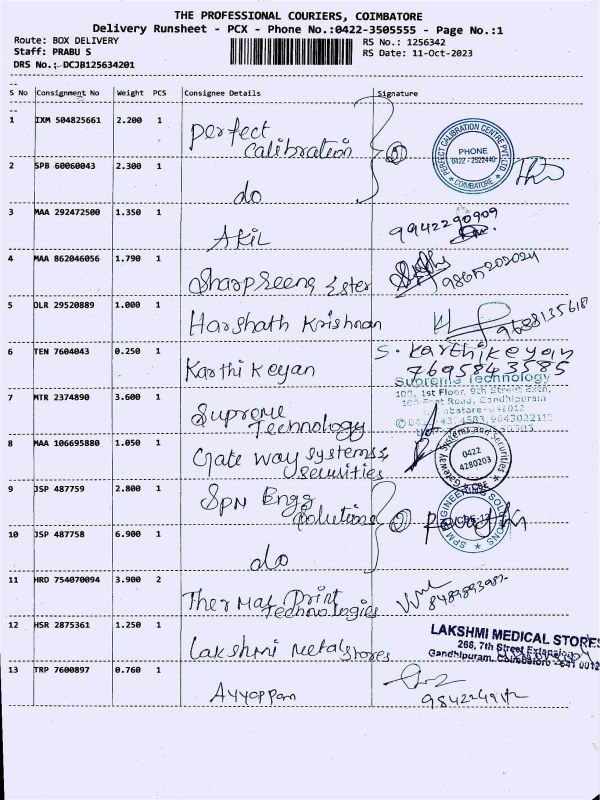 THE PROFESSIONAL COURIERS, COIMBATORE
Delivery Runsheet - PCX - Phone No.:0422-3505555 - Page No.:1
Route: BOX DELIVERY
RS No.: 1256342
Staff: PRABU S
RS Date: 11-Oct-2023
DRS No.: DCJB125634201
S No Consignment No Weight PCS Consignee Details Signature
1 IXM 504825661 2.200 1 Perfect Calibration
PERFECT CALIBRATION CENTRE PVT LTD
PHONE
0422 - 2522440
COIMBATORE
2 SPB 60060043 2.300 1 do
3 MAA 292472500 1.350 1 AKIL 9942290909
4 MAA 862046056 1.790 1 9865202024
5 DLR 29520889 1.000 1 Harshath Krishnan 9688135618
6 TEN 7604043 0.250 1 Karthi Keyan S. Karthikeyan
7695843585
7 MTR 2374890 3.600 1 Supreme Technology
Supreme Technology
1st Floor, 9th Street Extn,
Road, Gandhipuram
8 MAA 106695880 1.050 1 Gate way systems & Securities
Gateway Systems and Securities
0422
4280203
CBE
9 JSP 487759 2.800 1 SPN Engg Solutions
ENGINEERING SOLUTIONS
10 JSP 487758 6.900 1 do
11 HRD 754070094 3.900 2 Thermal Print Technologies
12 HSR 2875361 1.250 1 Lakshmi Metal stores
LAKSHMI MEDICAL STORES
268, 7th Street Extension
Gandhipuram, Coimbatore - 641 0012
13 TRP 7600897 0.760 1 Ayyappan